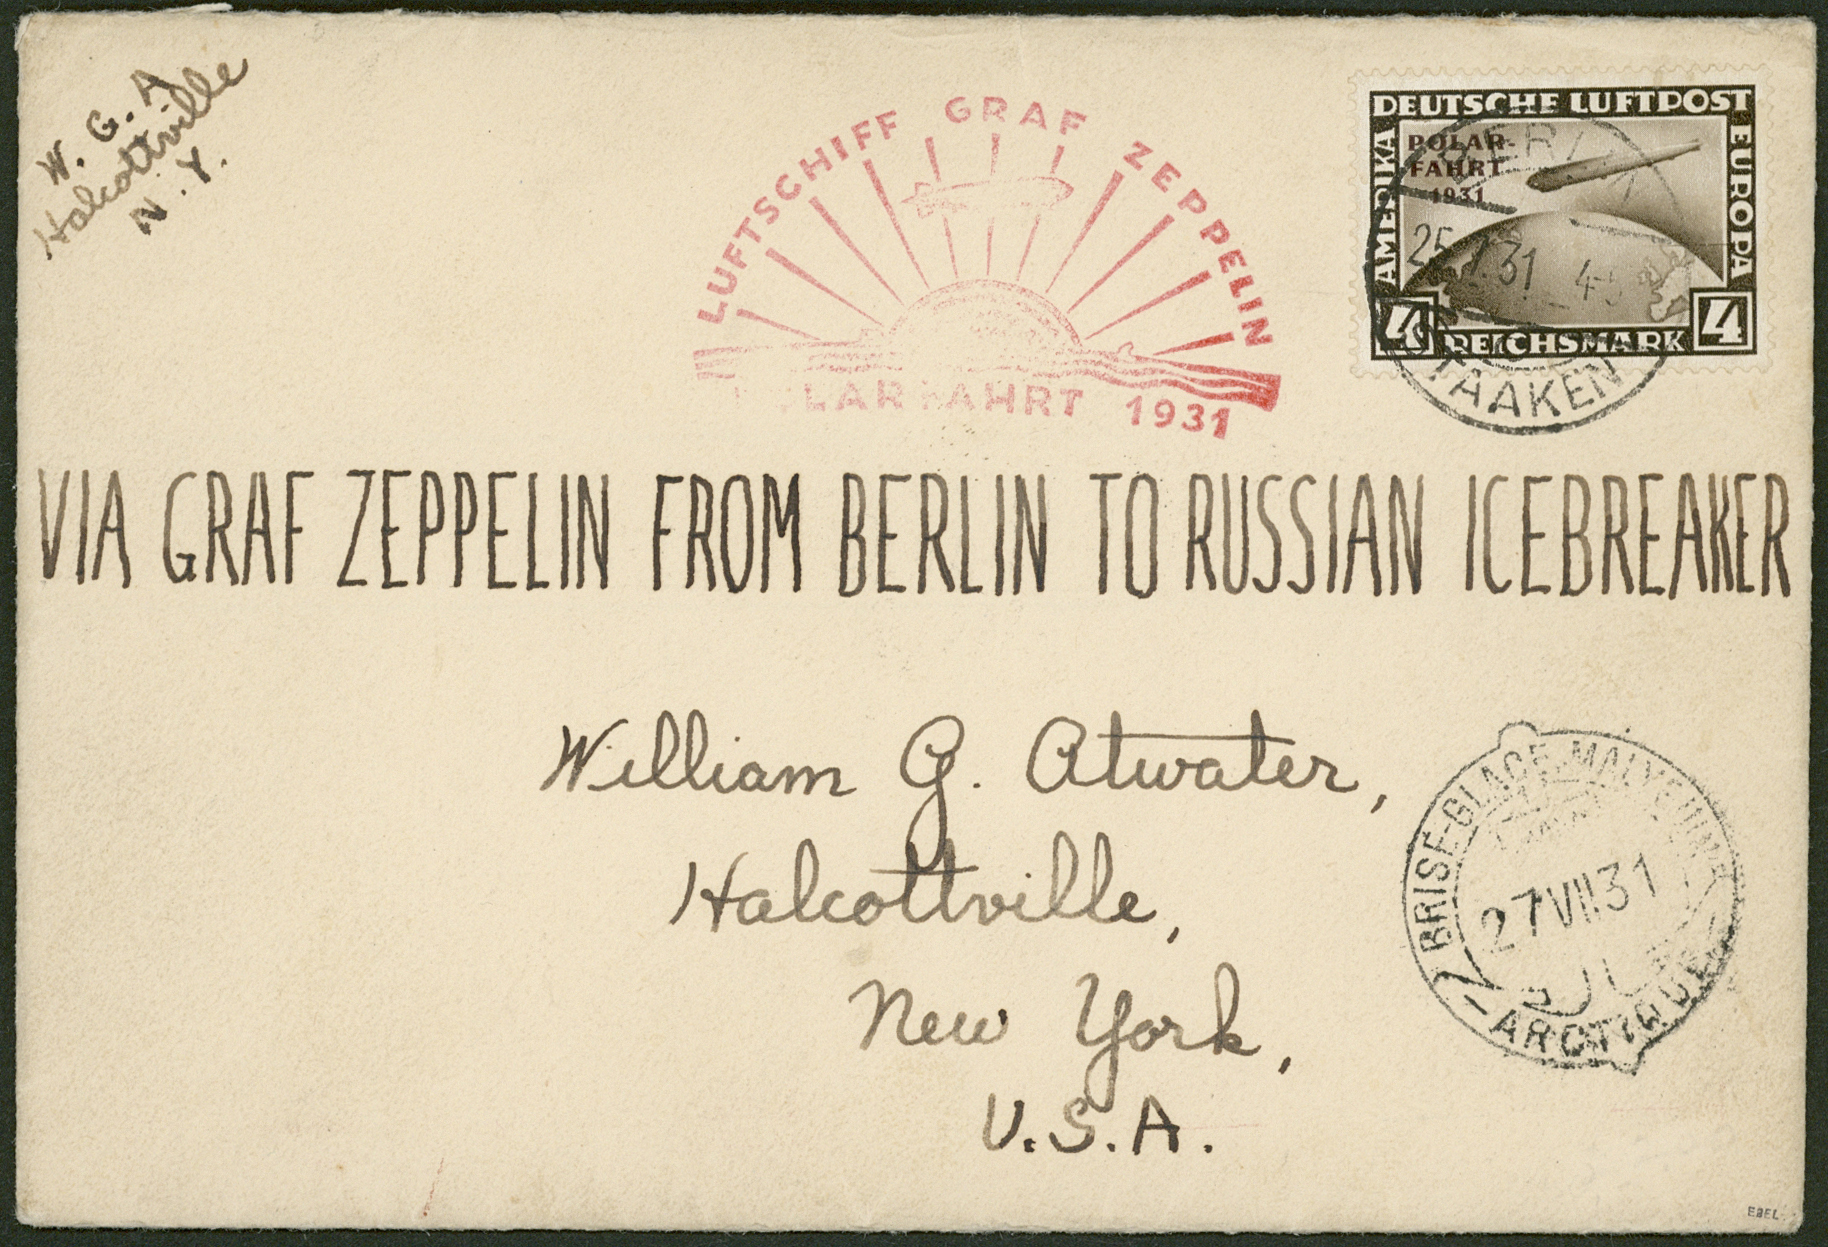 W. G. A
Halcottville
N. Y.
LUFTSCHIFF GRAF ZEPPELIN
POLARFAHRT 1931
DEUTSCHE LUFTPOST
AMERIKA
EUROPA
POLAR-
FAHRT
1931
4 REICHSMARK 4
BERLIN
25.7.31
STAAKEN
VIA GRAF ZEPPELIN FROM BERLIN TO RUSSIAN ICEBREAKER
William G. Atwater,
Halcottville,
New York,
U.S.A.
BRISE-GLACE MALYGUINE
27 VII 31
ARCTIQUE
EBEL